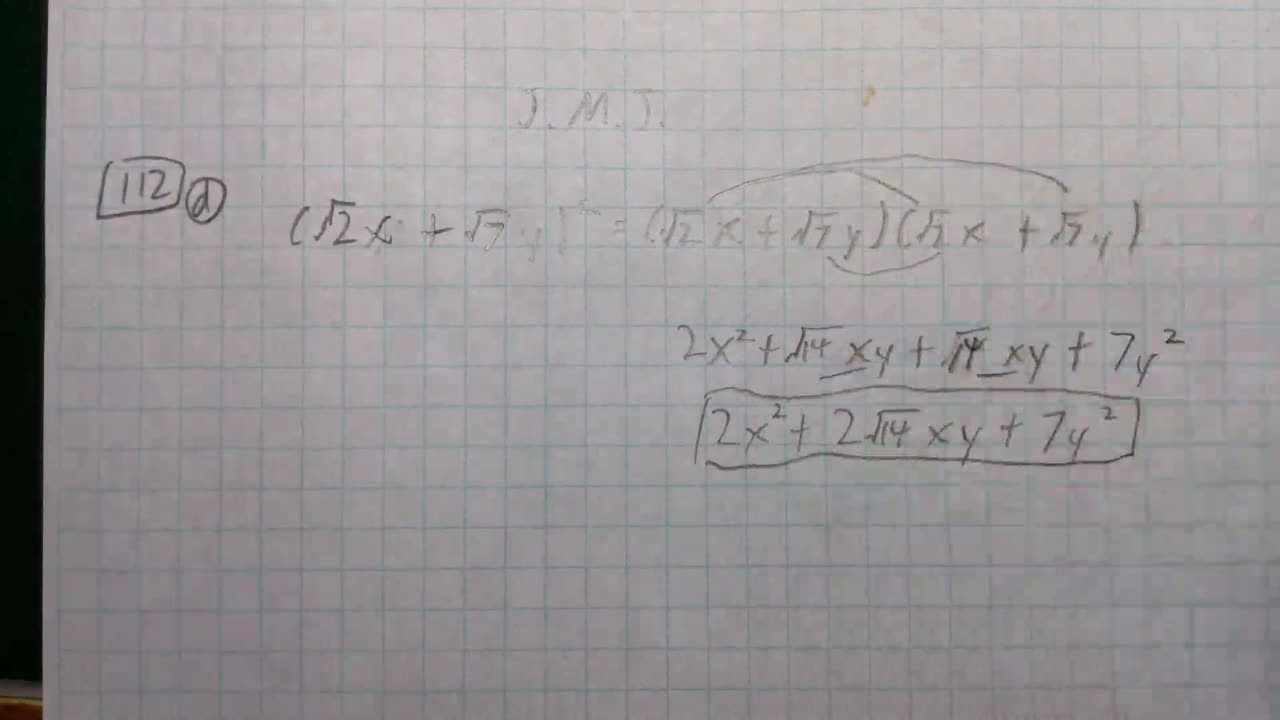 J.M.J.
112 d (√2x + √7y)² = (√2x + √7y)(√2x + √7y)
2x² + √14 xy + √14 xy + 7y²
2x² + 2√14 xy + 7y²